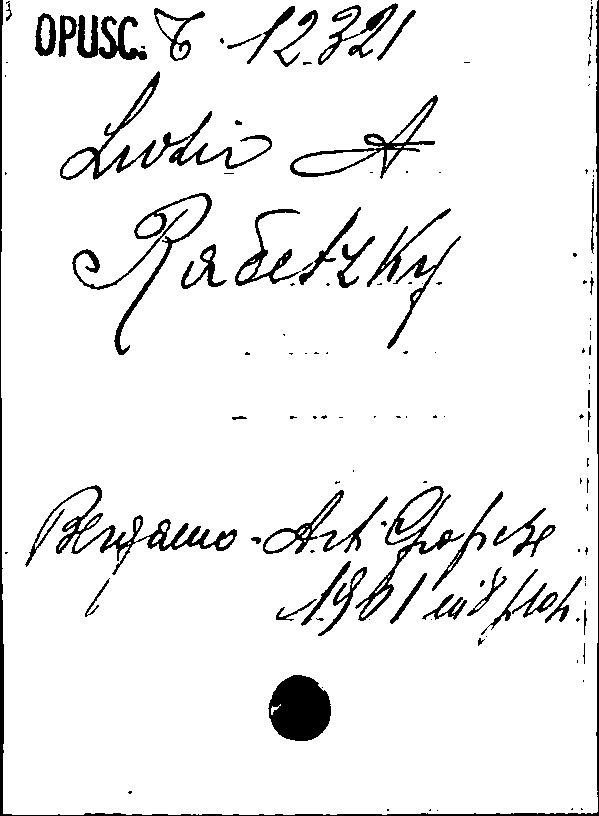 OPUSC. C. 12321
Luzio A
Radetzky
Bergamo - Arti Grafiche
1901 in 8 p.